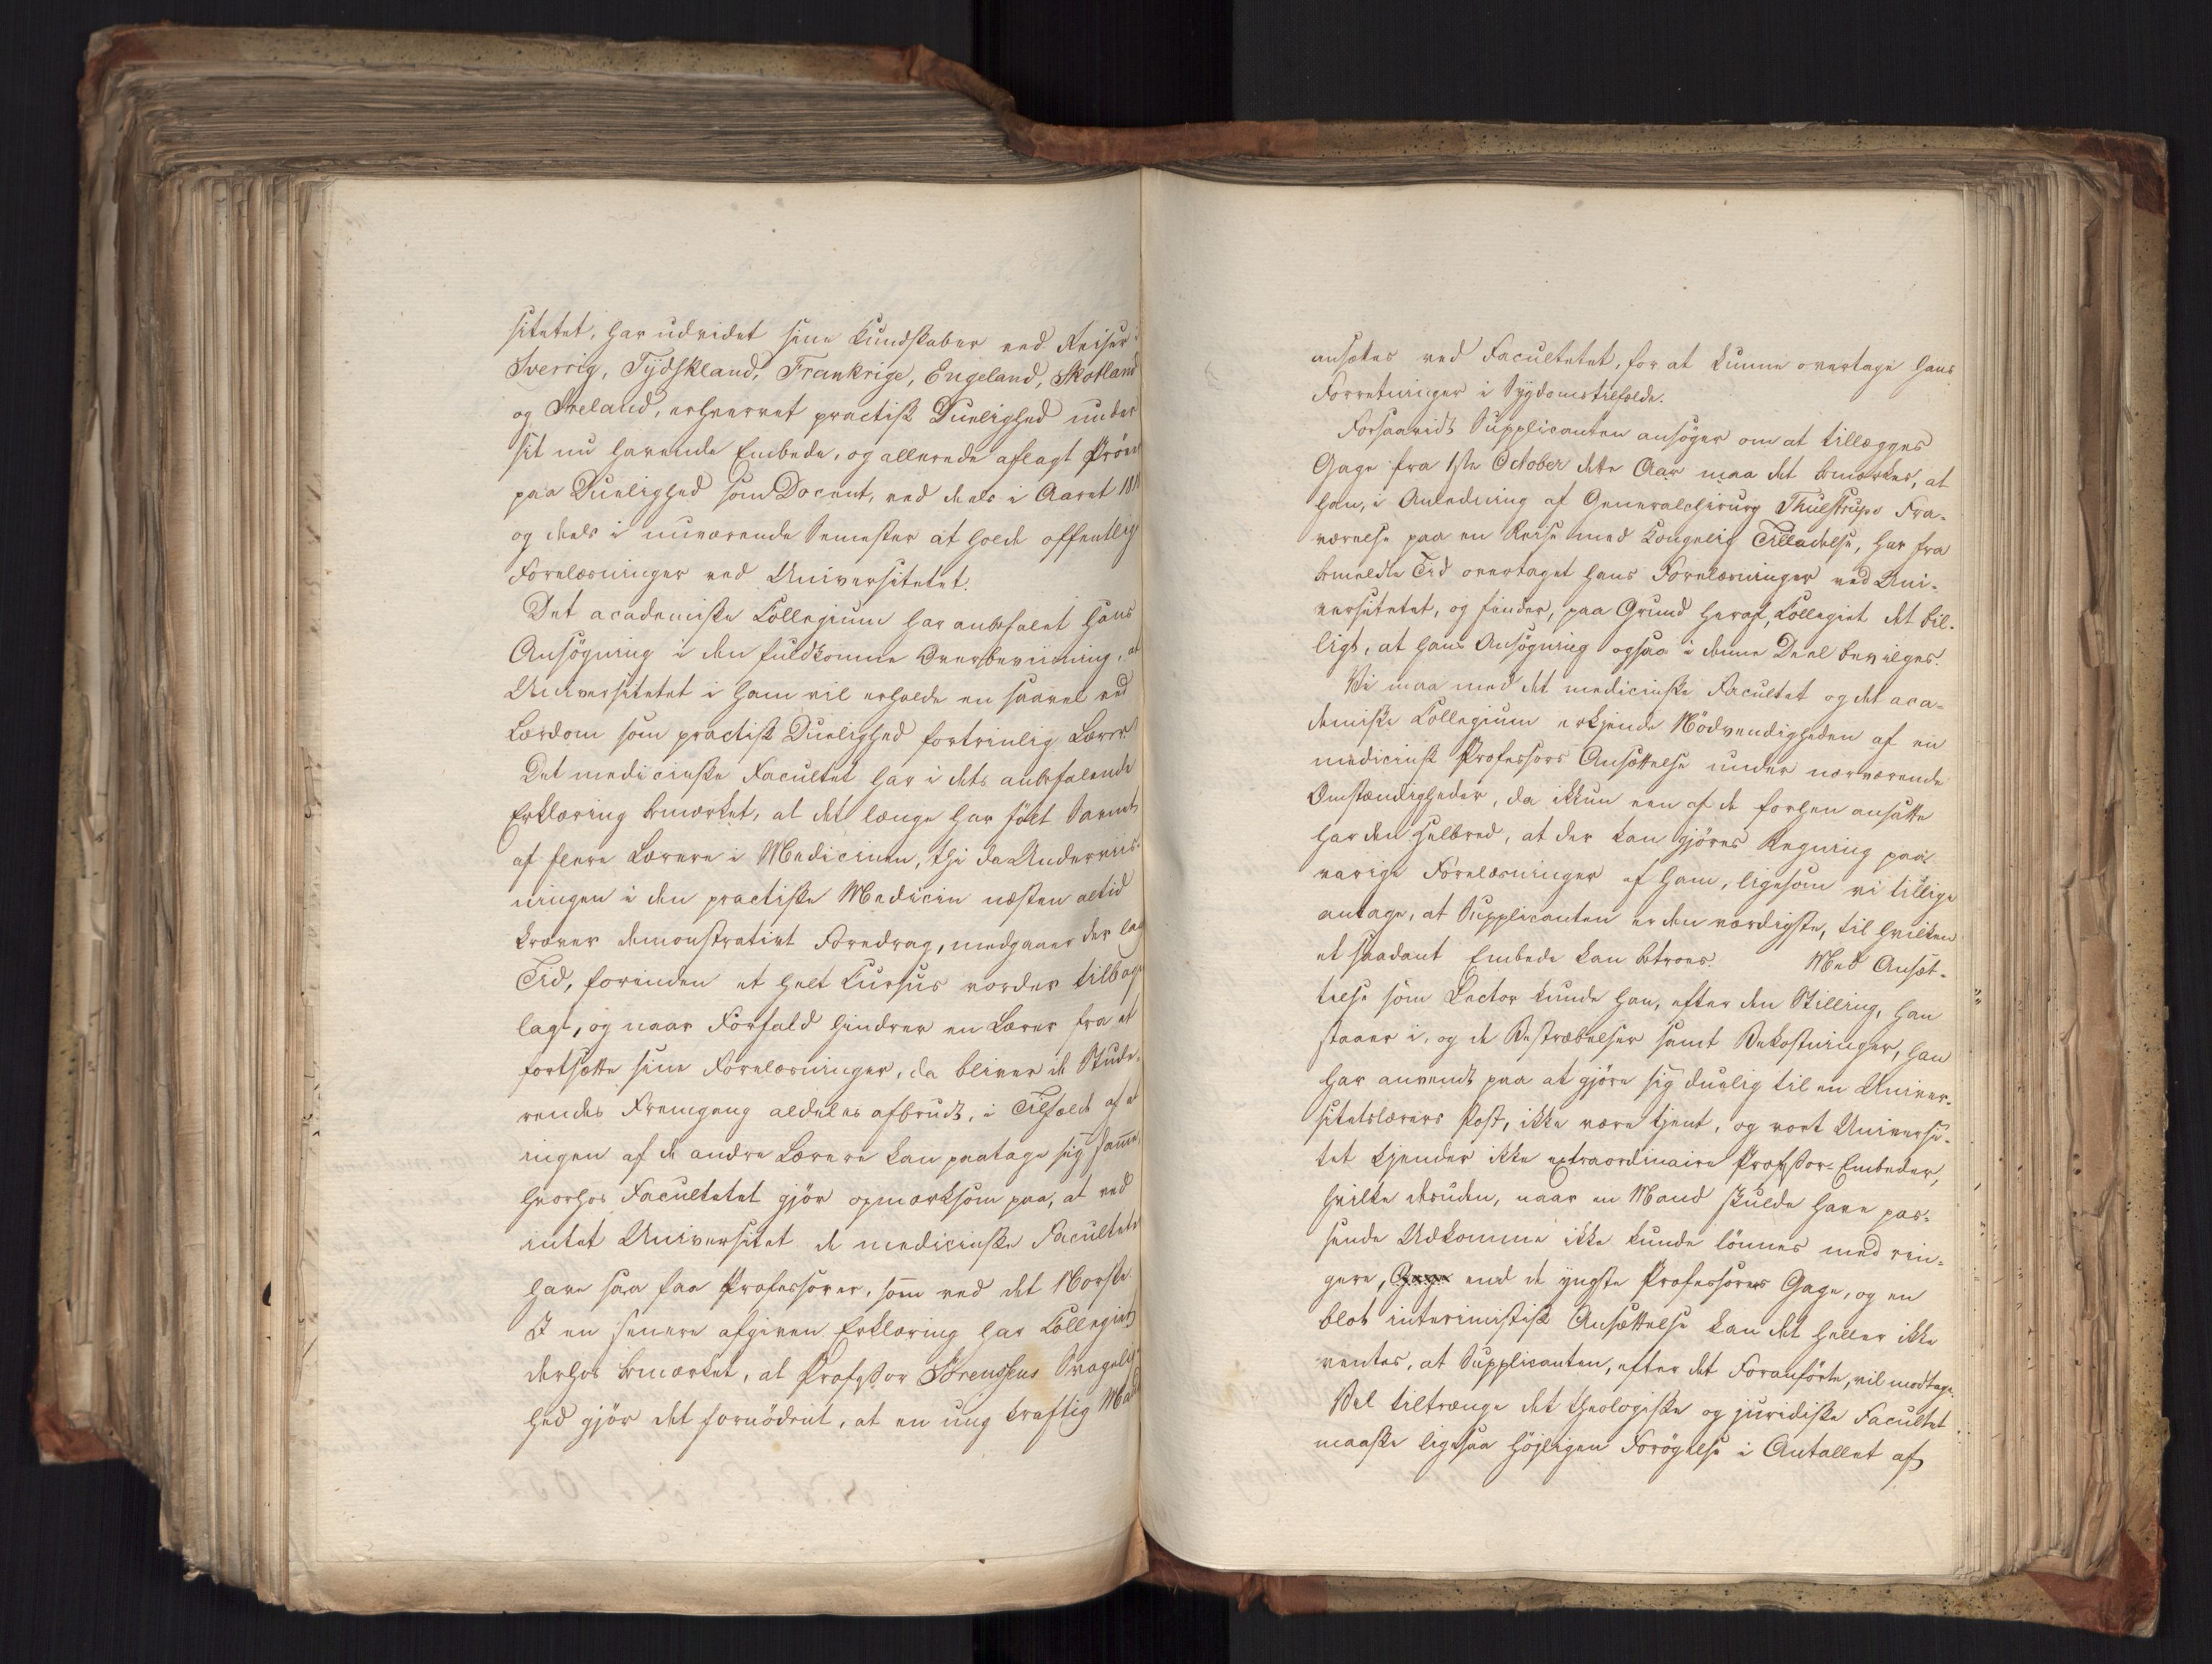 sitetet, har udvidet sine Kundskaber ved Reiser i
Sverrig, Tydskland, Frankrige, Engeland, Skotland
og Ireland, erhvervet practisk Duelighed under
sit nu havende Embede, og allerede aflagt Prøver
paa Duelighed som Docent, ved deels i Aaret
og deels i nuværende Semester at holde offentlig
Forelæsninger ved Universitetet.
Det academiske Collegium har anbefalet Hans
Ansøgning i den fuldkomne Overbeviisning, at
Universitetet i ham vil erholde en saavel ved
Lærdom som practisk Duelighed fortrinlig Lærer.
Det medicinske Facultet har i dets anbefalende
Erklæring bemærket, at det længe har følt Savnet
af flere Lærere i Medicinen, thi da Underviis-
ningen i den practiske Medicin næsten altid
kræver demonstrativt Foredrag, medgaaer der lang
Tid, forinden et heelt Cursus vorder tilbage
lagt, og naar Forfald hindrer en Lærer fra at
fortsætte sine Forelæsninger, da bliver de Stude-
rendes Fremgang aldeles afbrudt, i Tilfælde af at
ingen af de andre Lærere kan paatage sig samme,
hvorhos Facultetet gjør opmærksom paa, at ved
intet Universitet de medicinske Faculteter
have saa faa Professorer, som ved det Norske
I en senere afgiven Erklæring har Collegiet
derhos bemærket, at Professor Skrenssens Svagelig-
hed gjør det fornødent, at en ung kraftig Mand
ansættes ved Facultetet, for at kunne overtage hans
Forretninger i Sygdomstilfælde.
Forsaavidt Supplicanten ansøger om at tillægges
Gage fra 1ste October dette Aar maa det bemærkes, at
han, i Anledning af Generalchirurg Thulstrups Fra-
værelse paa en Reise med Kongelig Tilladelse, har fra
bemeldte Tid overtaget hans Forelæsninger ved Uni-
versitetet, og finder, paa Grund heraf, Collegiet det bil-
ligt, at hans Ansøgning ogsaa i denne Deel bevilges.
Vi maa med det medicinske Facultet og det aca-
demiske Collegium erkjende Nødvendigheden af en
medicinsk Professors Ansættelse under nærværende
Omstændigheder, da ikkun een af de forhen ansatte
har den Helbred, at der kan gjøres Regning paa
varige Forelæsninger af ham, ligesom vi tillige
antage, at Supplicanten er den værdigste, til hvilken
et saadant Embede kan betroes. Med Ansæt-
telse som Lector kunde han, efter den Stilling, han
staaer i, og de Bestræbelser samt Bekostninger, han
har anvendt paa at gjøre sig duelig til en Univer-
sitetslærers Post, ikke være tjent, og vort Universi-
tet kjender ikke extraordinaire Professor-Embeder,
hvilke desuden, naar en Mand skulde have pas-
sende Udkomme ikke kunde lønnes med rin-
gere, Gage end de yngste Professorers Gage, og en
blot interimistisk Ansættelse kan det heller ikke
ventes, at Supplicanten, efter det Foranførte, vil modtage.
Vel tiltrænge det theologiske og juridiske Facultet
maaske ligesaa høiligen Forøgelse i Antallet af